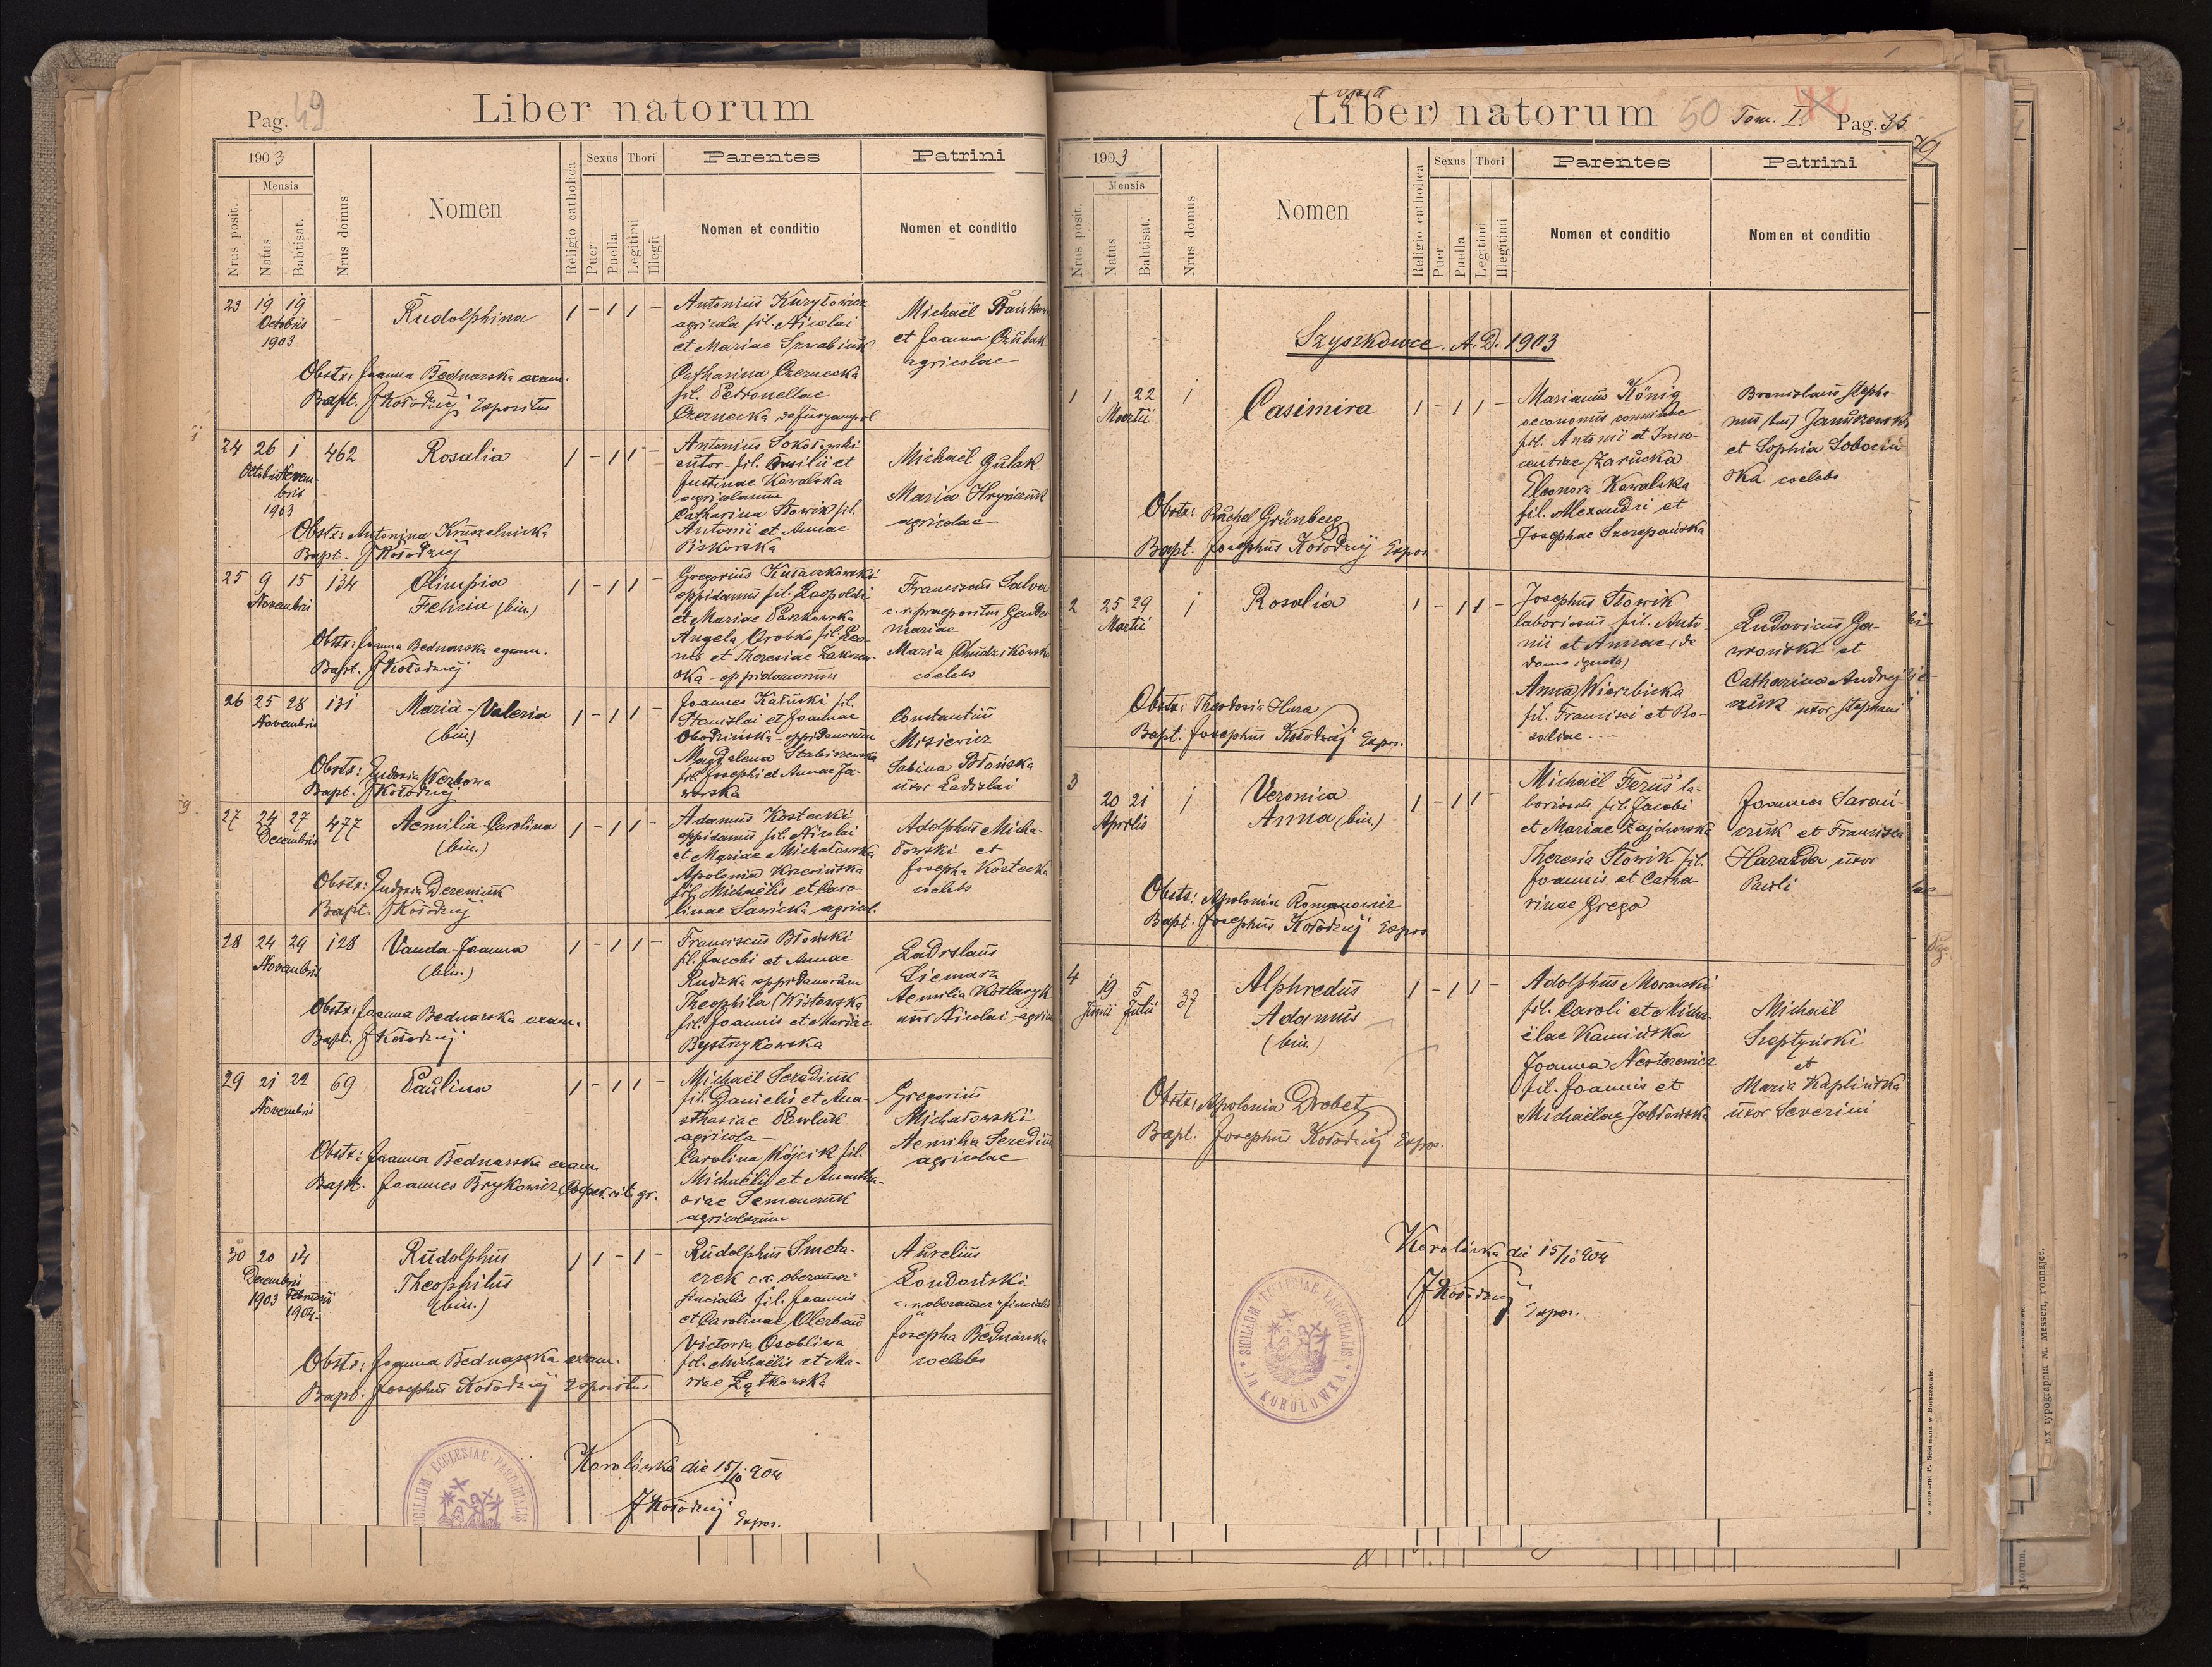 Pag. 49
Liber natorum
1903
Mensis
Nrus posit.
Natus
Babtisat.
Nrus domus
Nomen
Religio catholica
Sexus
Puer
Puella
Thori
Legitimi
Illegit
Parentes
Nomen et conditio
Patrini
Nomen et conditio
23 19 19
Octobris
1903
Rudolphina
1 - 1 1 -
Antonius Kuryłowicz
agricola fil. Nicolai
et Mariae Szwabiuk
Catharina Czernecka
fil. Petronellae
Czernecka
Michaël
et Joanna Czubak
agricolae
Obstx: Joanna Bednarska exam.
Bapt. JKołodziej Expositus
24 26 1 462
Octobris Novem-
bris
1903
Rosalia
1 - 1 1 -
Antonius Sokołowski
sutor - fil. Basilii et
Justinae Kowalska
agricolarum
Catharina Słowik fil.
Antonii et Annae
Piskorska
Michaël Gulak
Maria Hryńczuk
agricolae
Obstx: Antonina Kruszelnicka
Bapt. JKołodziej
25 9 15 134
Novembris
Olimpia
Felicia (bin.)
1 - 1 1 -
Gregorius Kułaczkowski
oppidanus fil. Leopoldi
et Mariae Paszkowska
Angela Drobko fil. Leo-
nis et Theresiae
ska - oppidanorum
Franciscus Salva
c. r. praepositus Gendar
mariae
Maria Chudzikowska
coelebs
Obstx: Joanna Bednarska exam.
Bapt. JKołodziej
26 25 28 131
Novembris
Maria - Valeria
(bin.)
1 - 1 1 -
Joannes Kałuski fil.
Stanislai et Joannae
Obodzińska - oppidanorum
Magdalena Stabiszewska
fil. Josephi et Annae Ja-
worska
Constantius
Misiewicz
Sabina Błońska
uxor Ladislai
Obstx: Eudoxia Werbowa
Bapt. JKołodziej
27 24 27 477
Decembris
Aemilia - Carolina
(bin.)
1 - 1 1 -
Adamus Kostecki
oppidanus fil. Nicolai
et Mariae Michałowska
Apolonia Krzesińska
fil. Michaëlis et Caro-
linae Sawicka agricol.
Adolphus Micha-
łowski et
Josepha Kostecka
coelebs
Obstx: Eudoxia Dereniuk
Bapt. JKołodziej
28 24 29 128
Novembris
Vanda - Joanna
(bin.)
1 - 1 1 -
Franciscus Błoński
fil. Jacobi et Annae
Rudzka oppidanorum
Theophila Wisłowska
fil. Joannis et Mariae
Bystrzykowska
Ladislaus
Siemasz
Aemilia Kotlaryk
uxor Nicolai agric
Obstx: Joanna Bednarska exam.
Bapt. JKołodziej
29 21 22 69
Novembris
Paulina
1 - 1 1 -
Michaël Serediuk
fil. Danielis et Ana-
sthasiae Pawluk
agricola -
Carolina Wójcik fil.
Michaëlis et Anastha-
siae Semanczuk
agricolarum
Gregorius
Michałowski
Aemilia Serediuk
agricolae
Obstx: Joanna Bednarska exam.
Bapt. Joannes Brykowicz rit. gr.
30 20 14
Decembris
1903 Februarii
1904.
Rudolphus
Theophilus
(bin.)
1 1 - 1 -
Rudolphus Smeta-
czek c. r.
fil. Joannis
et Carolinae Olerbau
Victoria Osobliwa
fil. Michaëlis et Ma-
riae Łątkowska
Aurelius
Londoński
Josepha Bednarska
coelebs
Obstx: Joanna Bednarska exam.
Bapt. Josephus Kołodziej Expositus
Korolówka die 15/10 904
JKołodziej
Expos.
SIGILLUM ECCLESIAE PAROCHIALIS
(Liber) natorum 50 Tom. I. Pag. 35
1903
Mensis
Nrus posit.
Natus
Babtisat.
Nrus domus
Nomen
Religio catholica
Sexus
Puer
Puella
Thori
Legitimi
Illegitimi
Parentes
Nomen et conditio
Patrini
Nomen et conditio
Szyszkowce. A. D. 1903
1 1 22 1
Martii
Casimira
1 - 1 1 -
Marianus König
oeconomus
fil. Antonii et Inno-
centiae Zarucka
Eleonora Kowalska
fil. Alexandri et
Josephae Szczepańska
Bronislaus Stepha-
nus (bin) Januszewski
et Sophia Sobociń-
ska coelebs
Obstx: Rachel Grünberg
Bapt. Josephus Kołodziej Expos.
2 25 29 1
Martii
Rosalia
1 - 1 1 -
Josephus Słowik
laboriosus fil. Anto
nii et Annae (de
domo ignota)
Anna Wierzbicka
fil. Francisci et Ro-
saliae - -
Ludovicus Ga-
wroński et
Catharina Andrej
czuk uxor Stephani
Obstx: Theodosia Hura
Bapt. Josephus Kołodziej Expos.
3 20 21 1
Aprilis
Veronica
Anna (bin.)
1 - 1 1 -
Michaël Ferus la-
boriosus fil. Jacobi
et Mariae Zajchowska
Theresia Słowik fil.
Joannis et Catha-
rinae Grega
Joannes Sarań-
czuk et Francisca
Harazda uxor
Pauli
Obstx: Apolonia Romanowicz
Bapt. Josephus Kołodziej Expos
4 19 5 37
Junii Julii
Alphredus
Adamus
(bin.)
1 - 1 1 -
Adolphus Morawski
fil. Caroli et Micha-
ëlae Kamińska
Joanna Nesterowicz
fil. Joannis et
Michaëlae Jabłowska
Michaël
Szeptyński
et
Maria Kaplińska
uxor Severini
Obstx: Apolonia Drobet
Bapt. Josephus Kołodziej Expos.
Korolówka die 15/10 904
JKołodziej
Expos.
SIGILLUM ECCLESIAE PAROCHIALIS
IN KOROLOWKA
Ex typographia M. Messeri, rodnajce.